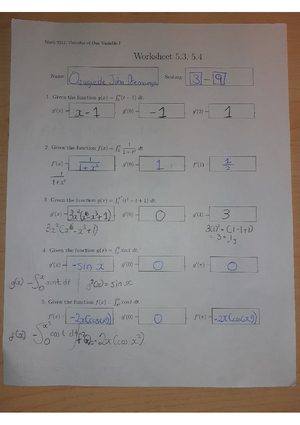 Math 1211: Calculus of One Variable I
Worksheet 5.3, 5.4
Name: John Section: 3-9
1. Given the function g(x) = ∫ (t − 1) dt
g'(x) = x-1 g'(0) = -1 g'(2) = 1
2. Given the function f(x) = ∫ 1/(1+t²) dt
f'(x) = 1/(1+x²) f'(0) = 1 f'(1) = 1/2
1/(1+x²)
3. Given the function g(x) =
g'(x) = 3x²(x⁶-x³+1) g'(0) = 0 g'(1) = 3
3x²(x⁶-x³+1) 3(1)² (1-1+1)
4. Given the function g(x) = sin t dt
g'(x) = -sin x g'(0) = 0 0
g(x) = -∫ sin t dt g'(x) = sin x
5. Given the function f(x) = cos t dt
f'(x) = -2x(cos x²) f'(0) = 0 -2x(cos x²)
g(x) -∫ cos t dt -2x(cos x²)